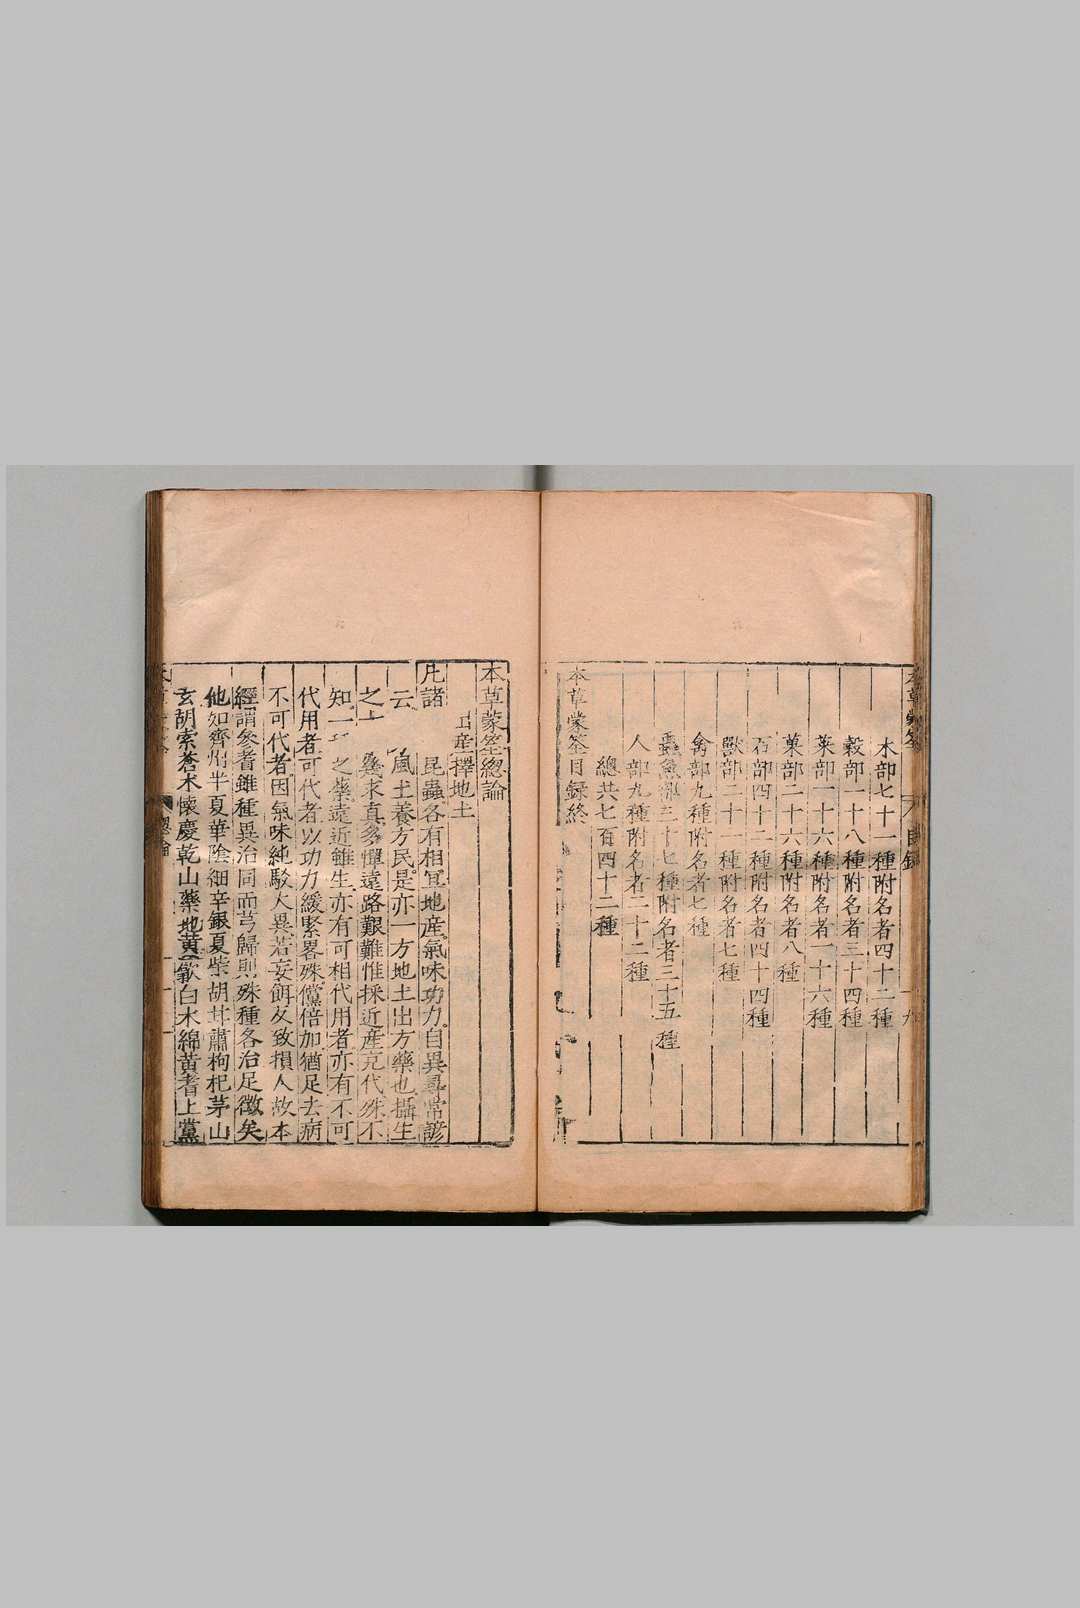 本草蒙筌
目錄
十九
木部七十一種附名者四十二種
穀部一十八種附名者三十四種
菜部一十六種附名者一十六種
菓部二十六種附名者八種
石部四十二種附名者四十四種
獸部二十一種附名者七種
禽部九種附名者七種
蟲魚部三十七種附名者三十五種
人部九種附名者二十二種
總共七百四十二種
本草蒙筌目録終
本草蒙筌總論
出産擇地土
凡諸 昆蟲各有相宜地産氣味功力自異尋常諺
云 風土養方民是亦一方地土出方藥也攝生
之士 幾求真多憚遠路艱難惟採近産充代殊不
知一 之藥遠近雖生亦有可相代用者亦有不可
代用者可代者以功力緩緊畧殊儻倍加猶足去病
不可代者因氣味純駁大異若妄餌反致損人故本
經謂參耆雖種異治同而芎歸則殊種各治足徵矣
他如齊州半夏華陰細辛銀夏柴胡甘肅枸杞茅山
玄胡索蒼朮懷慶乾山藥地黃歙白朮綿黃耆上黨
總論